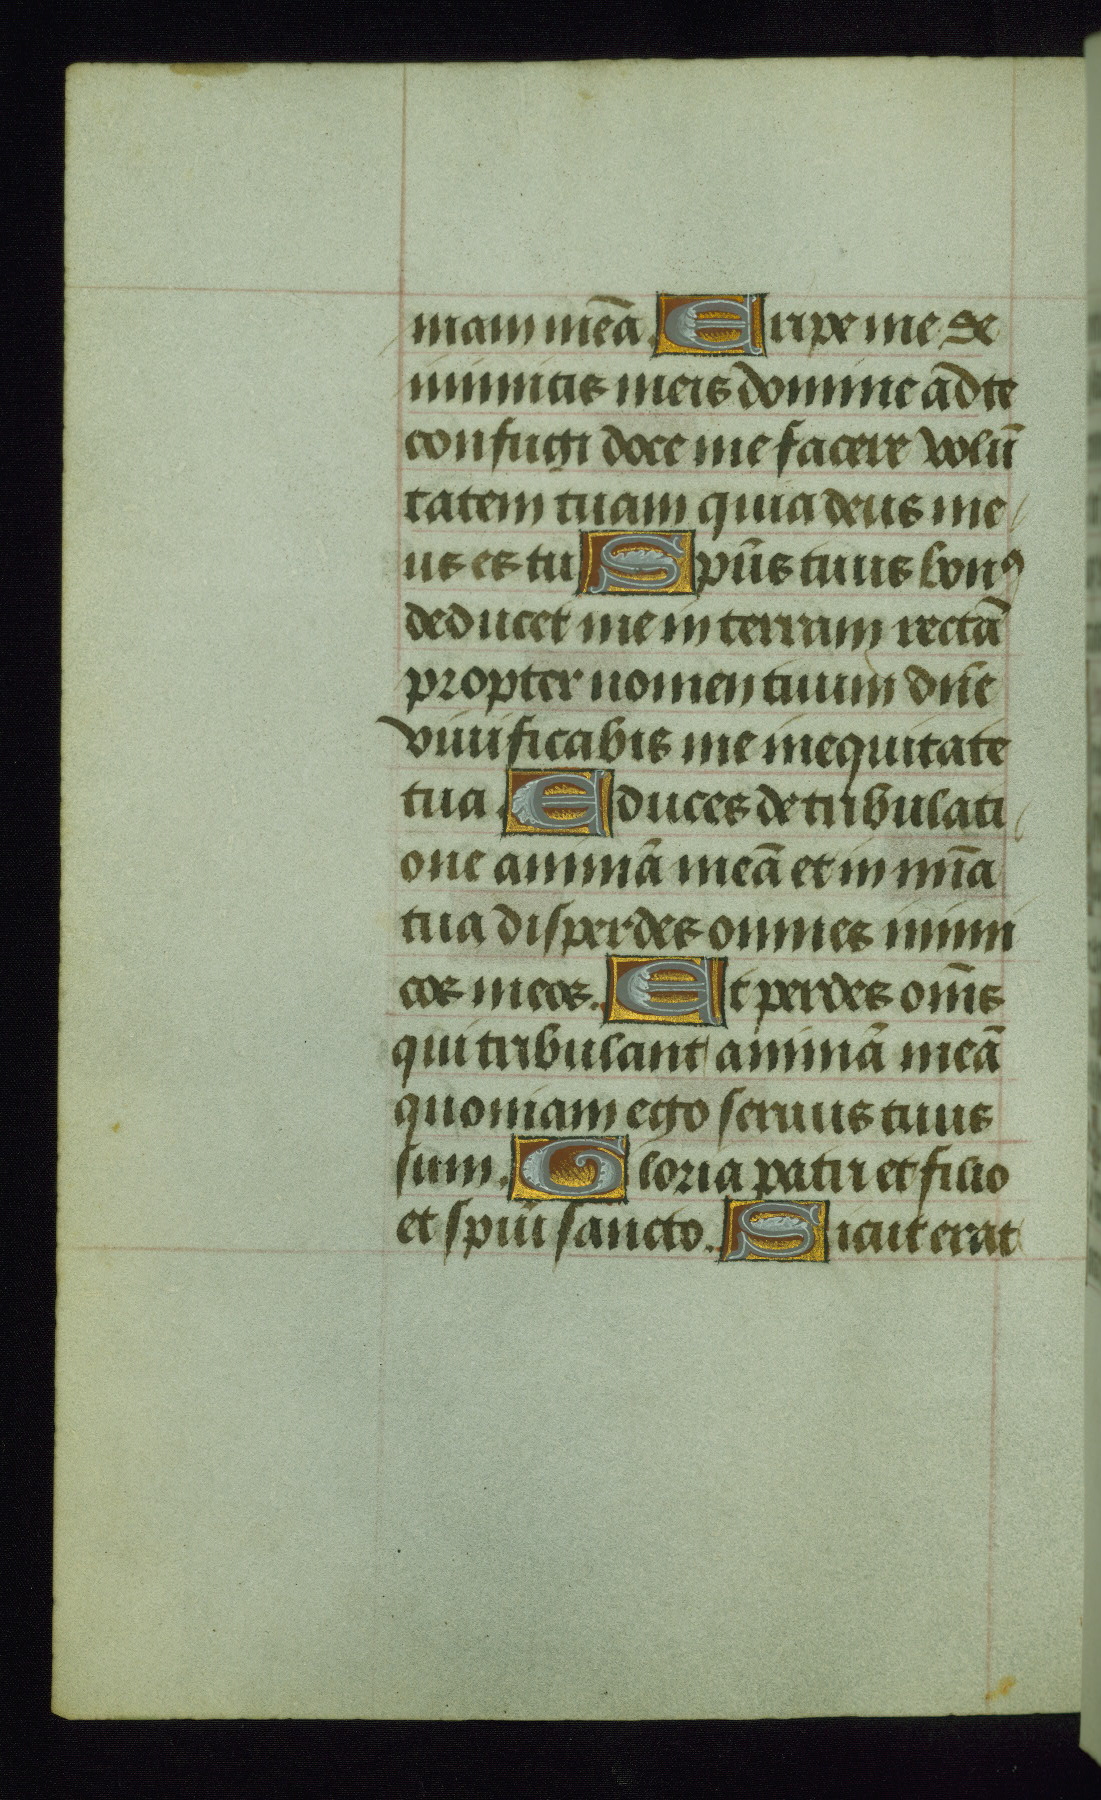 mam meā. Eripe me de
inimicis meis domine ad te
confugi doce me facere volū
tatem tuam quia deus me
us es tu Spūs tuus bonꝰ
deducet me in terram rectā
propter nomen tuum dn̄e
viuificabis me in equitate
tua. Educes de tribulati
one animā meā et in mīa
tua disperdes omnes inimi
cos meos. Et perdes om̄s
qui tribulant animā meā
quoniam ego seruus tuus
sum. Gloria patri et filio
et spūi sancto. Sicut erat